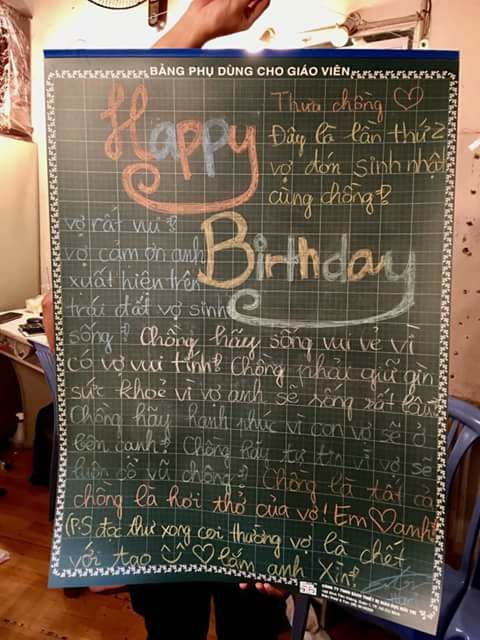 BẢNG PHỤ DÙNG CHO GIÁO VIÊN
Happy
Birthday
Thưa chồng ♡
Đây là lần thứ 2
vợ đón sinh nhật
cùng chồng?
vợ rất vui?
vợ cảm ơn anh
xuất hiện trên
trái đất vợ sinh
sống? Chồng hãy sống vui vẻ vì
có vợ vui tính? Chồng phải giữ gìn
sức khoẻ vì vợ anh sẽ sống rất lâu?
Chồng hãy hạnh phúc vì con vợ sẽ ở
bên cạnh? Chồng hãy tự tin vì vợ sẽ
luôn cổ vũ chồng? Chồng là tất cả
chồng là hơi thở của vợ! Em ♡ anh?
(P.S đọc thư xong coi thường vợ là chết
với tao ♡ lắm anh Xìn?